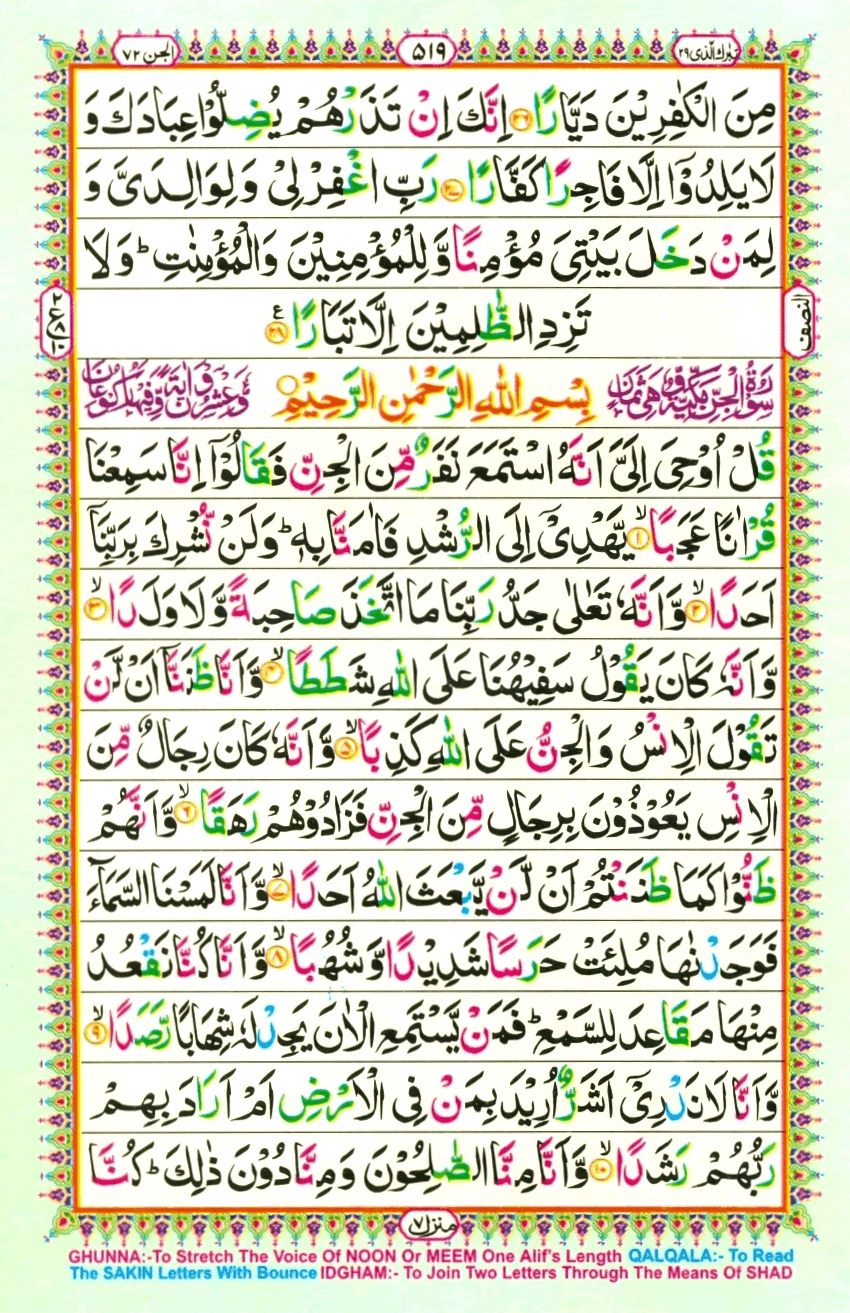 تبارك الذى ٢٩
٥١٩
الجن ٧٢
مِنَ الْكٰفِرِيْنَ دَيَّارًا ﴿۲۶﴾ اِنَّكَ اِنْ تَذَرْهُمْ يُضِلُّوْا عِبَادَكَ وَ
لَا يَلِدُوْۤا اِلَّا فَاجِرًا كَفَّارًا ﴿۲۷﴾ رَبِّ اغْفِرْ لِيْ وَلِوَالِدَيَّ وَ
لِمَنْ دَخَلَ بَيْتِيَ مُؤْمِنًا وَّلِلْمُؤْمِنِيْنَ وَالْمُؤْمِنٰتِ ؕ وَلَا
تَزِدِ الظّٰلِمِيْنَ اِلَّا تَبَارًا ﴿۲۸﴾ ع
النصف
٢
ع ٨
١٠
سُوْرَةُ الْجِنِّ مَكِّيَّةٌ وَّهِيَ ثَمَانٍ
بِسْمِ اللهِ الرَّحْمٰنِ الرَّحِيْمِ
وَّعِشْرُوْنَ اٰيَةً وَّفِيْهَا رُكُوْعَانِ
قُلْ اُوْحِيَ اِلَيَّ اَنَّهُ اسْتَمَعَ نَفَرٌ مِّنَ الْجِنِّ فَقَالُوْۤا اِنَّا سَمِعْنَا
قُرْاٰنًا عَجَبًا ﴿۱﴾ۙ يَّهْدِيْۤ اِلَى الرُّشْدِ فَاٰمَنَّا بِهٖ ؕ وَلَنْ نُّشْرِكَ بِرَبِّنَاۤ
اَحَدًا ﴿۲﴾ۙ وَّاَنَّهٗ تَعٰلٰى جَدُّ رَبِّنَا مَا اتَّخَذَ صَاحِبَةً وَّلَا وَلَدًا ﴿۳﴾ۙ
وَّاَنَّهٗ كَانَ يَقُوْلُ سَفِيْهُنَا عَلَى اللهِ شَطَطًا ﴿۴﴾ۙ وَّاَنَّا ظَنَنَّاۤ اَنْ لَّنْ
تَقُوْلَ الْاِنْسُ وَالْجِنُّ عَلَى اللهِ كَذِبًا ﴿۵﴾ۙ وَّاَنَّهٗ كَانَ رِجَالٌ مِّنَ
الْاِنْسِ يَعُوْذُوْنَ بِرِجَالٍ مِّنَ الْجِنِّ فَزَادُوْهُمْ رَهَقًا ﴿۶﴾ۙ وَّاَنَّهُمْ
ظَنُّوْا كَمَا ظَنَنْتُمْ اَنْ لَّنْ يَّبْعَثَ اللهُ اَحَدًا ﴿۷﴾ۙ وَّاَنَّا لَمَسْنَا السَّمَآءَ
فَوَجَدْنٰهَا مُلِئَتْ حَرَسًا شَدِيْدًا وَّشُهُبًا ﴿۸﴾ۙ وَّاَنَّا كُنَّا نَقْعُدُ
مِنْهَا مَقَاعِدَ لِلسَّمْعِ ؕ فَمَنْ يَّسْتَمِعِ الْاٰنَ يَجِدْ لَهٗ شِهَابًا رَّصَدًا ﴿۹﴾ۙ
وَّاَنَّا لَا نَدْرِيْۤ اَشَرٌّ اُرِيْدَ بِمَنْ فِي الْاَرْضِ اَمْ اَرَادَ بِهِمْ
رَبُّهُمْ رَشَدًا ﴿۱۰﴾ۙ وَّاَنَّا مِنَّا الصّٰلِحُوْنَ وَمِنَّا دُوْنَ ذٰلِكَ ؕ كُنَّا
منزل ٧
GHUNNA:-To Stretch The Voice Of NOON Or MEEM One Alif's Length QALQALA:- To Read
The SAKIN Letters With Bounce IDGHAM:- To Join Two Letters Through The Means Of SHAD